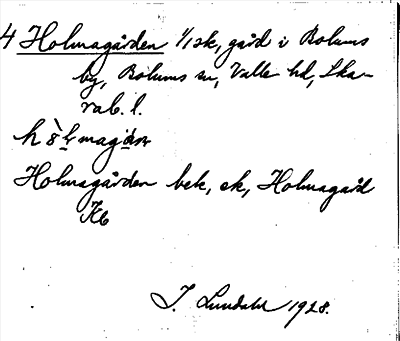 4 Holmagården 1/1 sk, gård i Bolums
by, Bolums sn, Valle hd, Ska-
rab. l.
Holmagården bek, ek, Holmagård
Kb
J. Lundahl 1928.